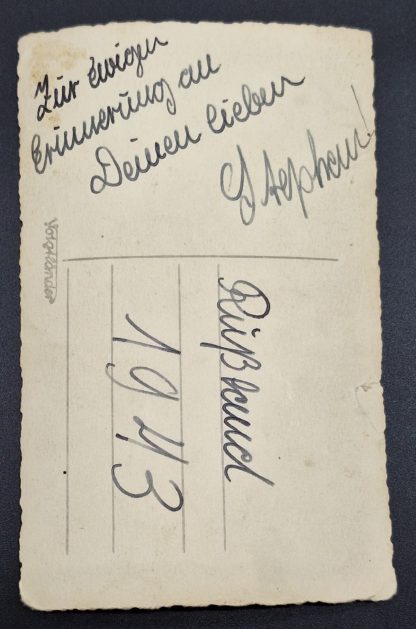 Zur ewigen
Erinnerung an
Deinen lieben
Stephan!
Voigtländer
Rußland
1943